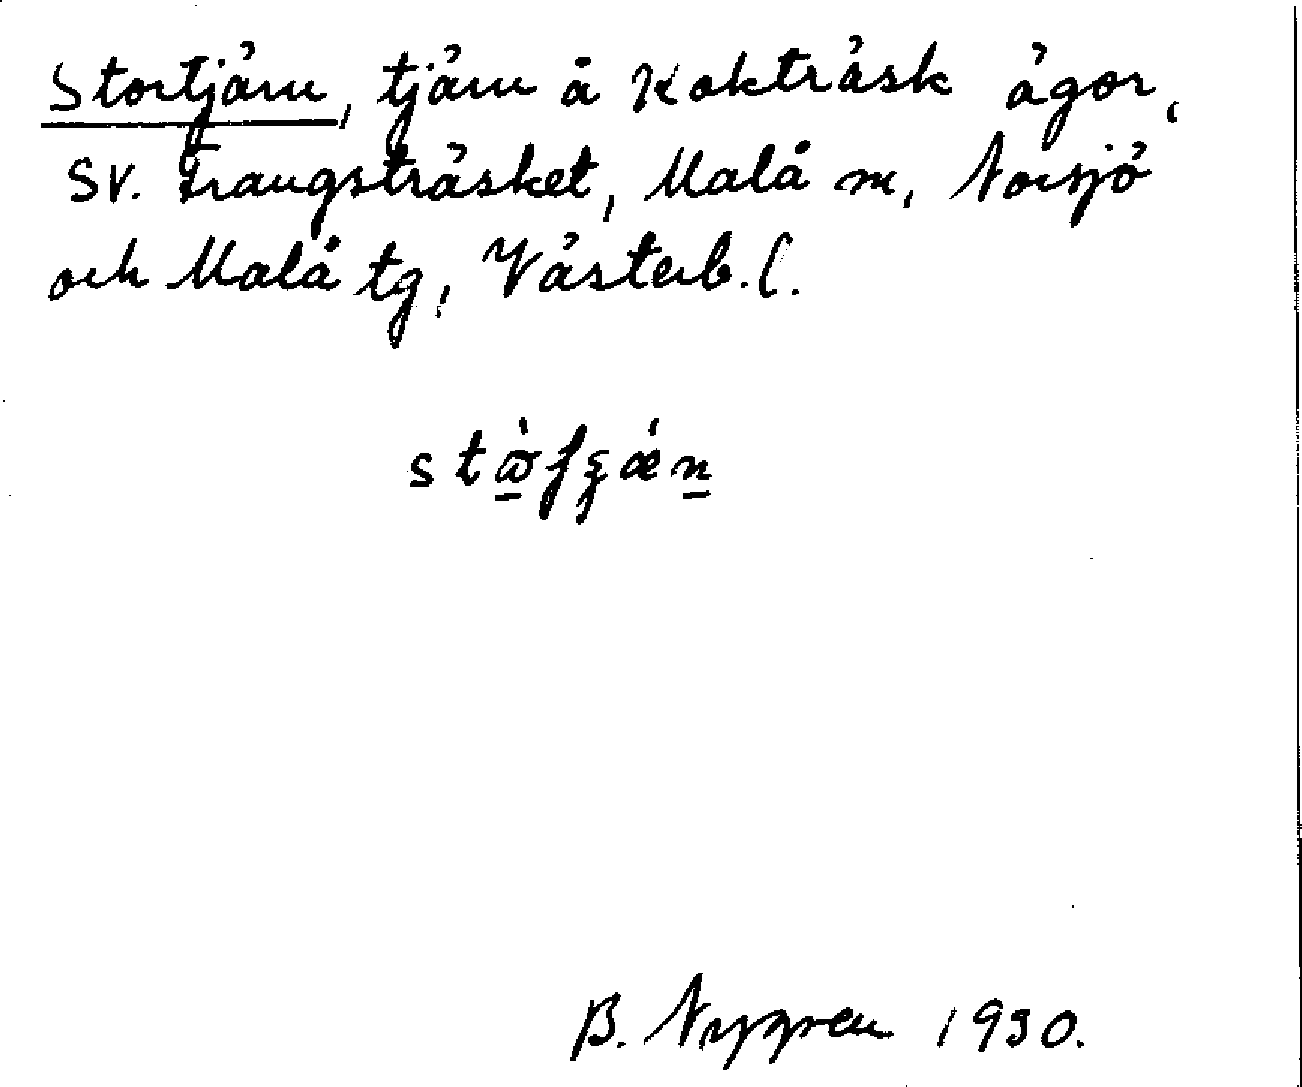 Stortjärn, tjärn å Kokträsk ägor,
SV. Trångsträsket, Malå sn, Norsjö
och Malå tg, Västerb. l.
B. Nygren 1930.